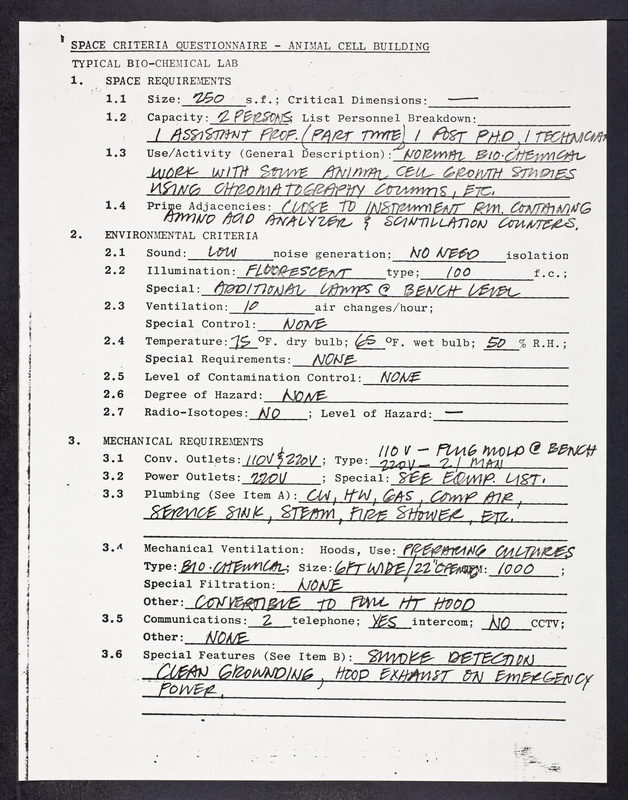 SPACE CRITERIA QUESTIONNAIRE - ANIMAL CELL BUILDING
TYPICAL BIO-CHEMICAL LAB
1. SPACE REQUIREMENTS
1.1 Size: 750 s.f.; Critical Dimensions: —
1.2 Capacity: 2 PERSONS List Personnel Breakdown:
1 ASSISTANT PROF. (PART TIME) 1 POST PH.D, 1 TECHNICIAN
1.3 Use/Activity (General Description): NORMAL BIO-CHEMICAL
WORK WITH SOME ANIMAL CELL GROWTH STUDIES
USING CHROMATOGRAPHY COLUMNS, ETC.
1.4 Prime Adjacencies: CLOSE TO INSTRUMENT RM. CONTAINING
AMINO ACID ANALYZER & SCINTILLATION COUNTERS.
2. ENVIRONMENTAL CRITERIA
2.1 Sound: LOW noise generation; NO NEED isolation
2.2 Illumination: FLUORESCENT type; 100 f.c.;
Special: ADDITIONAL LAMPS @ BENCH LEVEL
2.3 Ventilation: 10 air changes/hour;
Special Control: NONE
2.4 Temperature: 75 °F. dry bulb; 65 °F. wet bulb; 50 % R.H.;
Special Requirements: NONE
2.5 Level of Contamination Control: NONE
2.6 Degree of Hazard: NONE
2.7 Radio-Isotopes: NO ; Level of Hazard: —
3. MECHANICAL REQUIREMENTS
110 V — PLUG MOLD @ BENCH
3.1 Conv. Outlets: 110V & 220V ; Type: 220V — 2 / MAN
3.2 Power Outlets: 220V ; Special: SEE EQUIP. LIST.
3.3 Plumbing (See Item A): CW, HW, GAS, COMP AIR,
SERVICE SINK, STEAM, FIRE SHOWER, ETC.
3.4 Mechanical Ventilation: Hoods, Use: PREPARING CULTURES
Type: BIO-CHEMICAL; Size: 6FT WIDE/22" : 1000 ;
Special Filtration: NONE
Other: CONVERTIBLE TO FULL HT HOOD
3.5 Communications: 2 telephone; YES intercom; NO CCTV;
Other: NONE
3.6 Special Features (See Item B): SMOKE DETECTION
CLEAN GROUNDING, HOOD EXHAUST ON EMERGENCY
POWER.